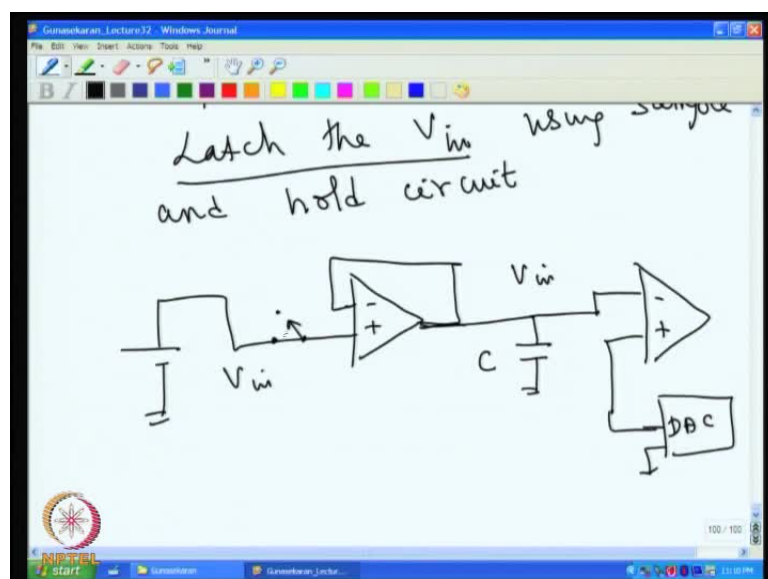 Gunasekaran_Lecture32 - Windows Journal
File Edit View Insert Actions Tools Help
B I
Latch the Vin using sample
and hold circuit
Vin
-
+
Vin
C
-
+
DAC
100 / 100
NPTEL
start Gunasekaran Gunasekaran_Lectur... 11:10 PM